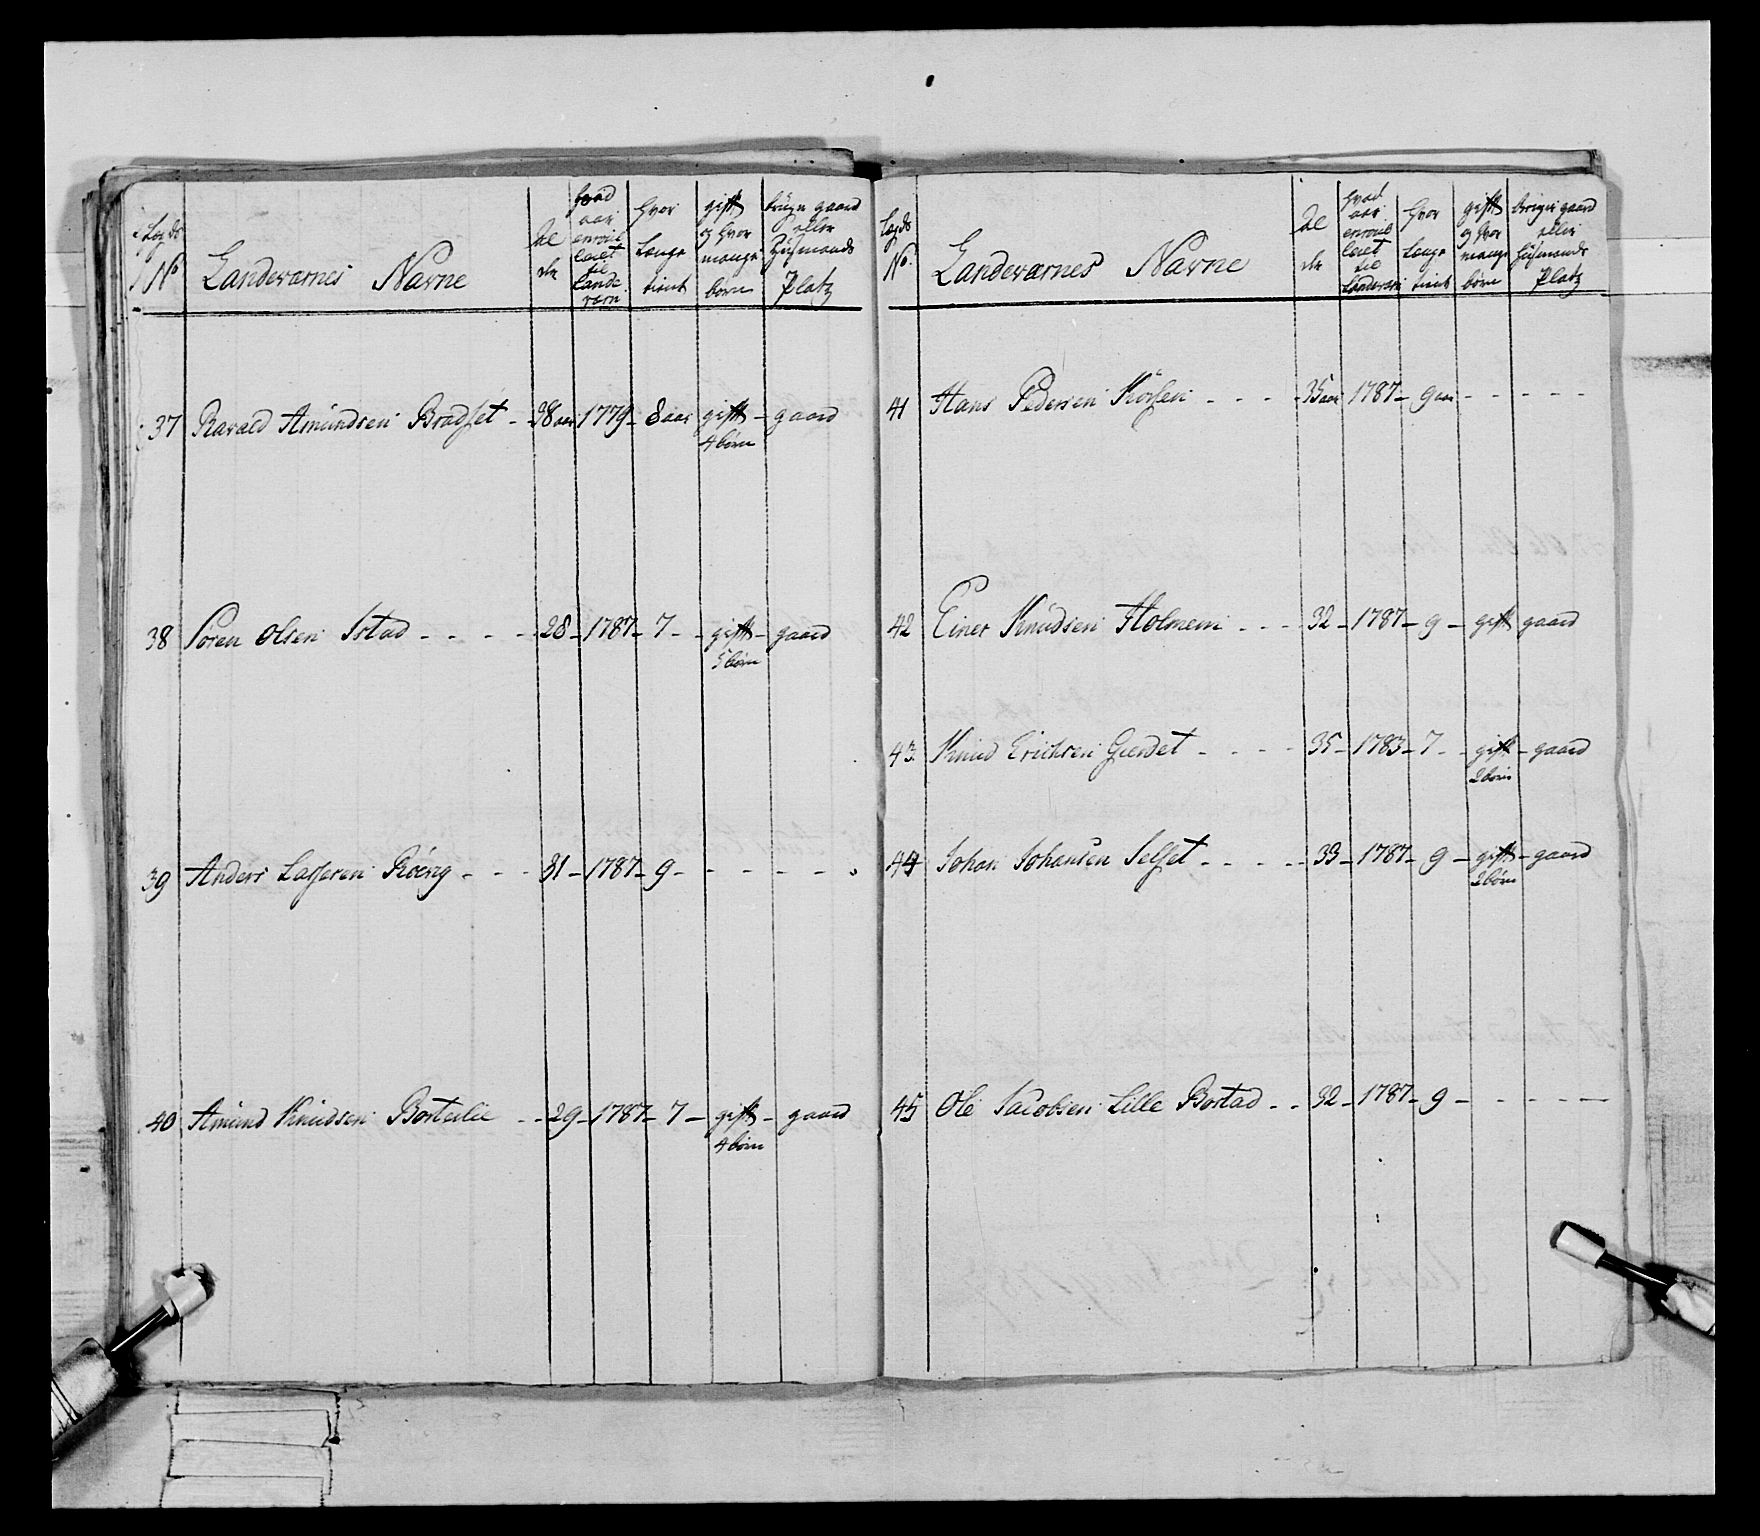 Lægds No | Landeværnes Navne | Al der | hvad aar enroulleret til Landeværn | hvor Længe tient | gift og hvor mange børn | bruger gaard eller Huusmands Platz
37 Ravald Amundsen Bradset - 38 aar 1779 - 8 aar gift - gaard
4 børn
38 Søren Olsen Istad - - - - 28 - 1787 - 7 - - gift - gaard
5 børn
39 Anders Lassesen Røeng - - - 31 - 1787 - 9 - - - - -
40 Amund Knudsen Bortelie - - 29 - 1787 - 7 - gift - gaard
4 børn
Lægds No. | Landeværnes Navne | Al der | hvad aar enroulleret til Landeværn | hvor Længe tient | gift og hvor mange børn | bruger gaard eller Huusmands Platz
41 Hans Pedersen - - - - 35 aar 1787 - 9 aar - - - - -
42 Einer Knudsen Holmem - - - 32 - 1787 - 9 - gift gaard
43 Knud Erichsen Gierdet - - - - 35 - 1783 - 7 - - gift - gaard
2 børn
44 Johan Johansen Selset - - - - 33 - 1787 - 9 - gift - gaard
2 børn
45 Ole Jacobsen Lille Bostad - - 32 - 1787 - 9 - - - - -